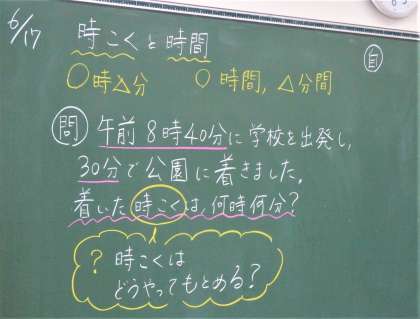 6/17
時こくと時間
自
○時△分 ○時間,△分間
問 午前8時40分に学校を出発し,
30分で公園に着きました。
着いた時こくは,何時何分?
? 時こくは
どうやってもとめる?